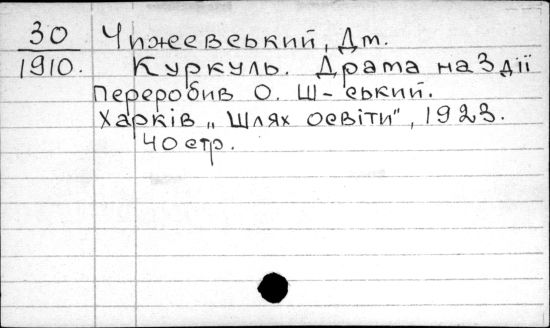 30 Чижевський, Дм.
1910. Куркуль. Драма на 3 дії
переробив О. Ш-ський.
Харків „Шлях освіти", 1923.
40 стр.